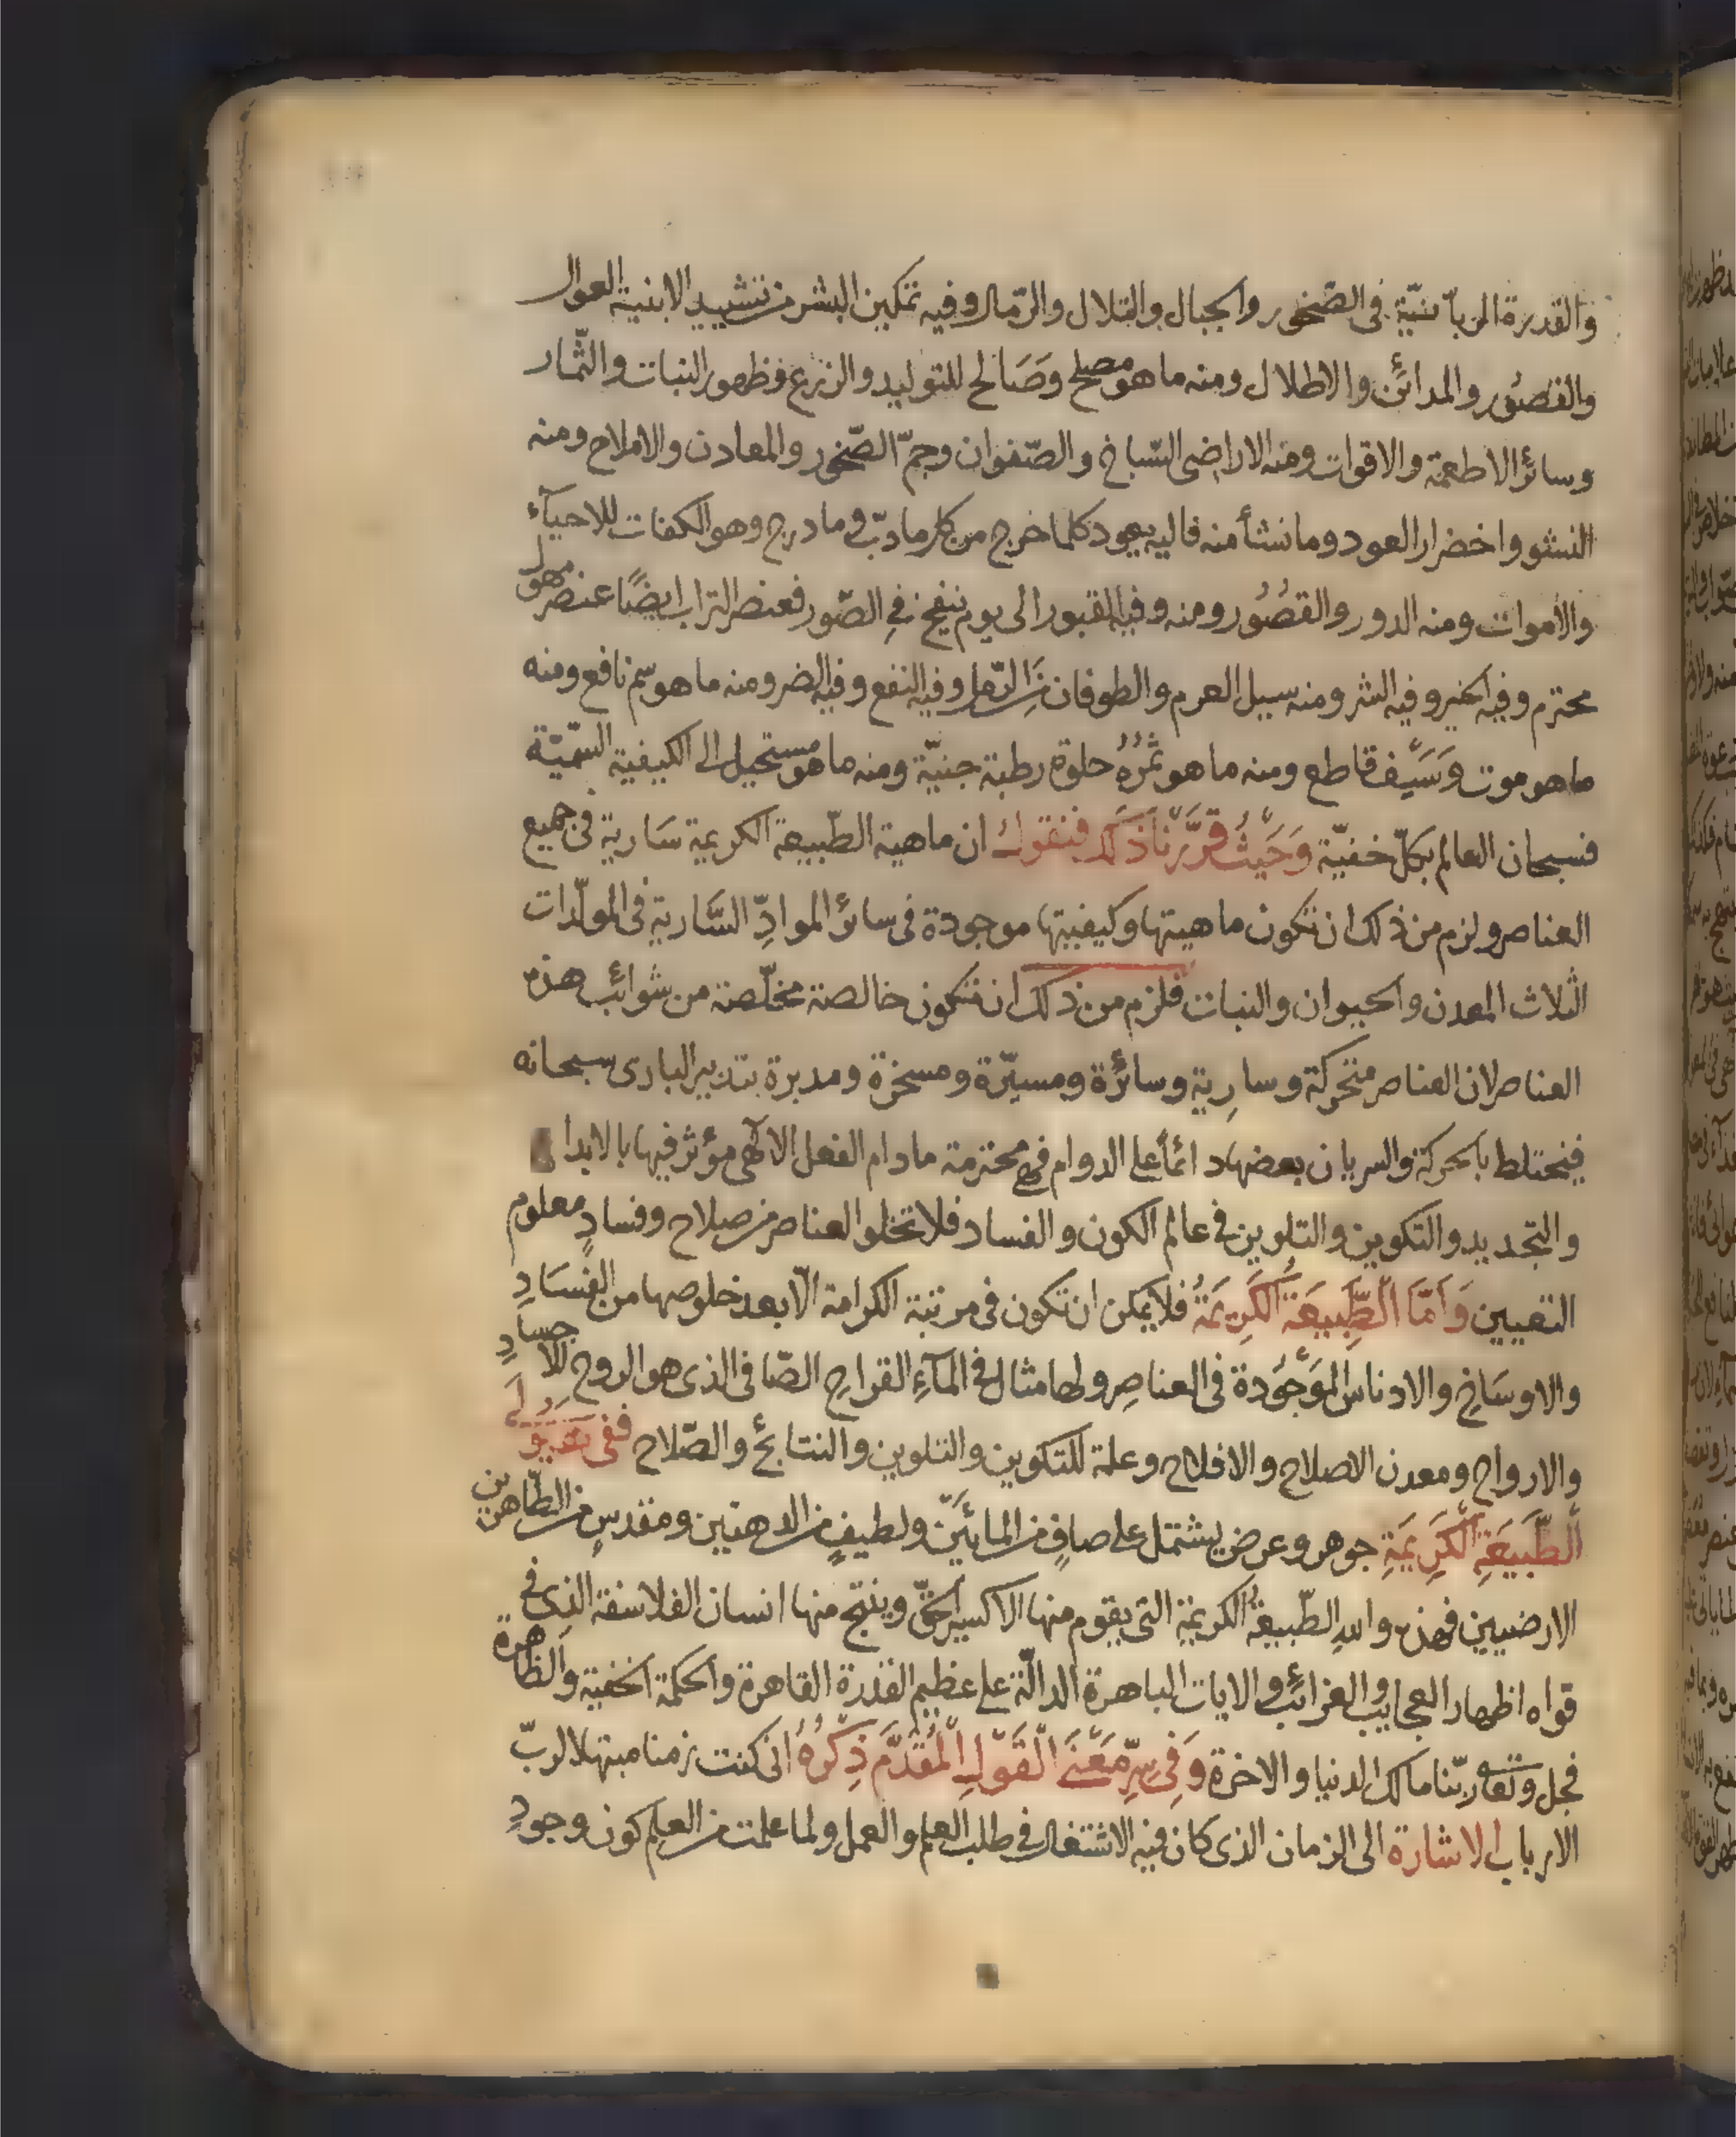 والقدرة الربانيّة فى الصّخور والجبال والتلال والرّمال وفيه تمكين البشر من تشييد الابنية العوال
والقصُور والمدائن والاطلال ومنه ما هو مصلح وصَالح للتوليد والزرع وظهور النبات والثّمار
وسائر الاطعمة والاقوات ومنه الاراضى السّباخ والصّفوان وجمّ الصّخور والمعادن والاملاح ومنه
النشو واخضرار العود وما نشأ منه فاليه يعود كلما خرج من كل ما دبّ وما درج وهو الكفات للاحيآء
والأموات ومنه الدور والقصُور ومنه وفيه القبور الى يوم ينفخ فى الصّور فعنصر التراب ايضًا عنصر مهول
محترم وفيه الخير وفيه الشر ومنه سيل العرم والطوفان من الرّمل وفيه النفع وفيه الضر ومنه ما هو سم نافع ومنه
ما هو موت وسَيف قاطع ومنه ما هو ثمرة حلوة رطبة جنيّة ومنه ما هو مستحيل الى الكيفية السّميّة
فسبحان العالم بكلّ خفيّة وَحَيْثُ قَرَّرْنَا ذَلك فنقول ان ماهية الطّبيعة الكريمة سَارية فى جميع
العناصر ولزم من ذلك ان تكون ماهيتها وكيفيتها موجودة فى سائر الموادِّ السَّارية فى المولّدات
الثلاث المعدن والحيوان والنبات فلزم من ذلك ان تكون خالصة مخلّصة من شوائب هذه
العناصر لان العناصر متحركة وسارية وسائرة ومسيّرة ومسخرة ومدبرة بتدبير البارى سبحانه
فيختلط بالحركة والسريان بعضها دائمًا على الدوام فهى محترمة ما دام الفعل الالٓهى مؤثر فيها بالابدا
والتجديد والتكوين والتلوين فى عالم الكون والفساد فلا تخلو العناصر من صلاح وفسادٍ معلوم
التعيين وَاَمَّا الطَّبِيعَةُ الكَرِيمَةُ فلا يمكن ان تكون فى مرتبة الكرامة الّا بعد خلوصها من الفسَادِ
والاوسَاخِ والادناس الموَجُودة فى العناصِر ولها مثال فى المآءِ القراحِ الصّافى الذى هو الروح للاجسادِ
والارواح ومعدن الاصلاح والافلاح وعلة للتكوين والتلوين والنتائج والصّلاح ففى
الطَّبيعَةِ الكَرِيمَةِ جوهر وعرض يشتمل على صافٍ من المائيَّن ولطيفٍ من الدهنين ومقدسٍ من الطّاهرين
الارضيين فهذه والله الطّبيعة الكريمة التى يقوم منها الاكسير الحقّ وينتج منها انسان الفلاسفة الذى فى
قواه اظهار العجايب والغرائب والايات الباهرة الدالّة على عظيم القدرة القاهرة والحكمة الخفية والظاهرة
فجل وتعالى ربّنا مالك الدنيا والاخرة وَفِى سِرِّ مَعْنَى الْقَوْلِ الْمُقَدَّمَ ذِكْرُهُ انى كنت زمنا مبتهلا لربّ
الارباب الاشارة الى الزمان الذى كان فيه الاشتغال فى طلب العلم والعمل ولما علمت من العلم كون وجودِ